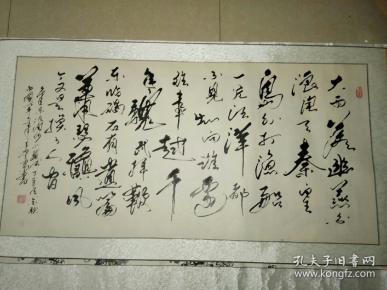 大雨落幽燕白
浪滔天秦皇
岛外打渔船
一片汪洋都
不见知向谁边
往事越千
年魏武挥鞭
东临碣石有遗篇
萧瑟秋风
今又是换了人间
孔夫子旧书网